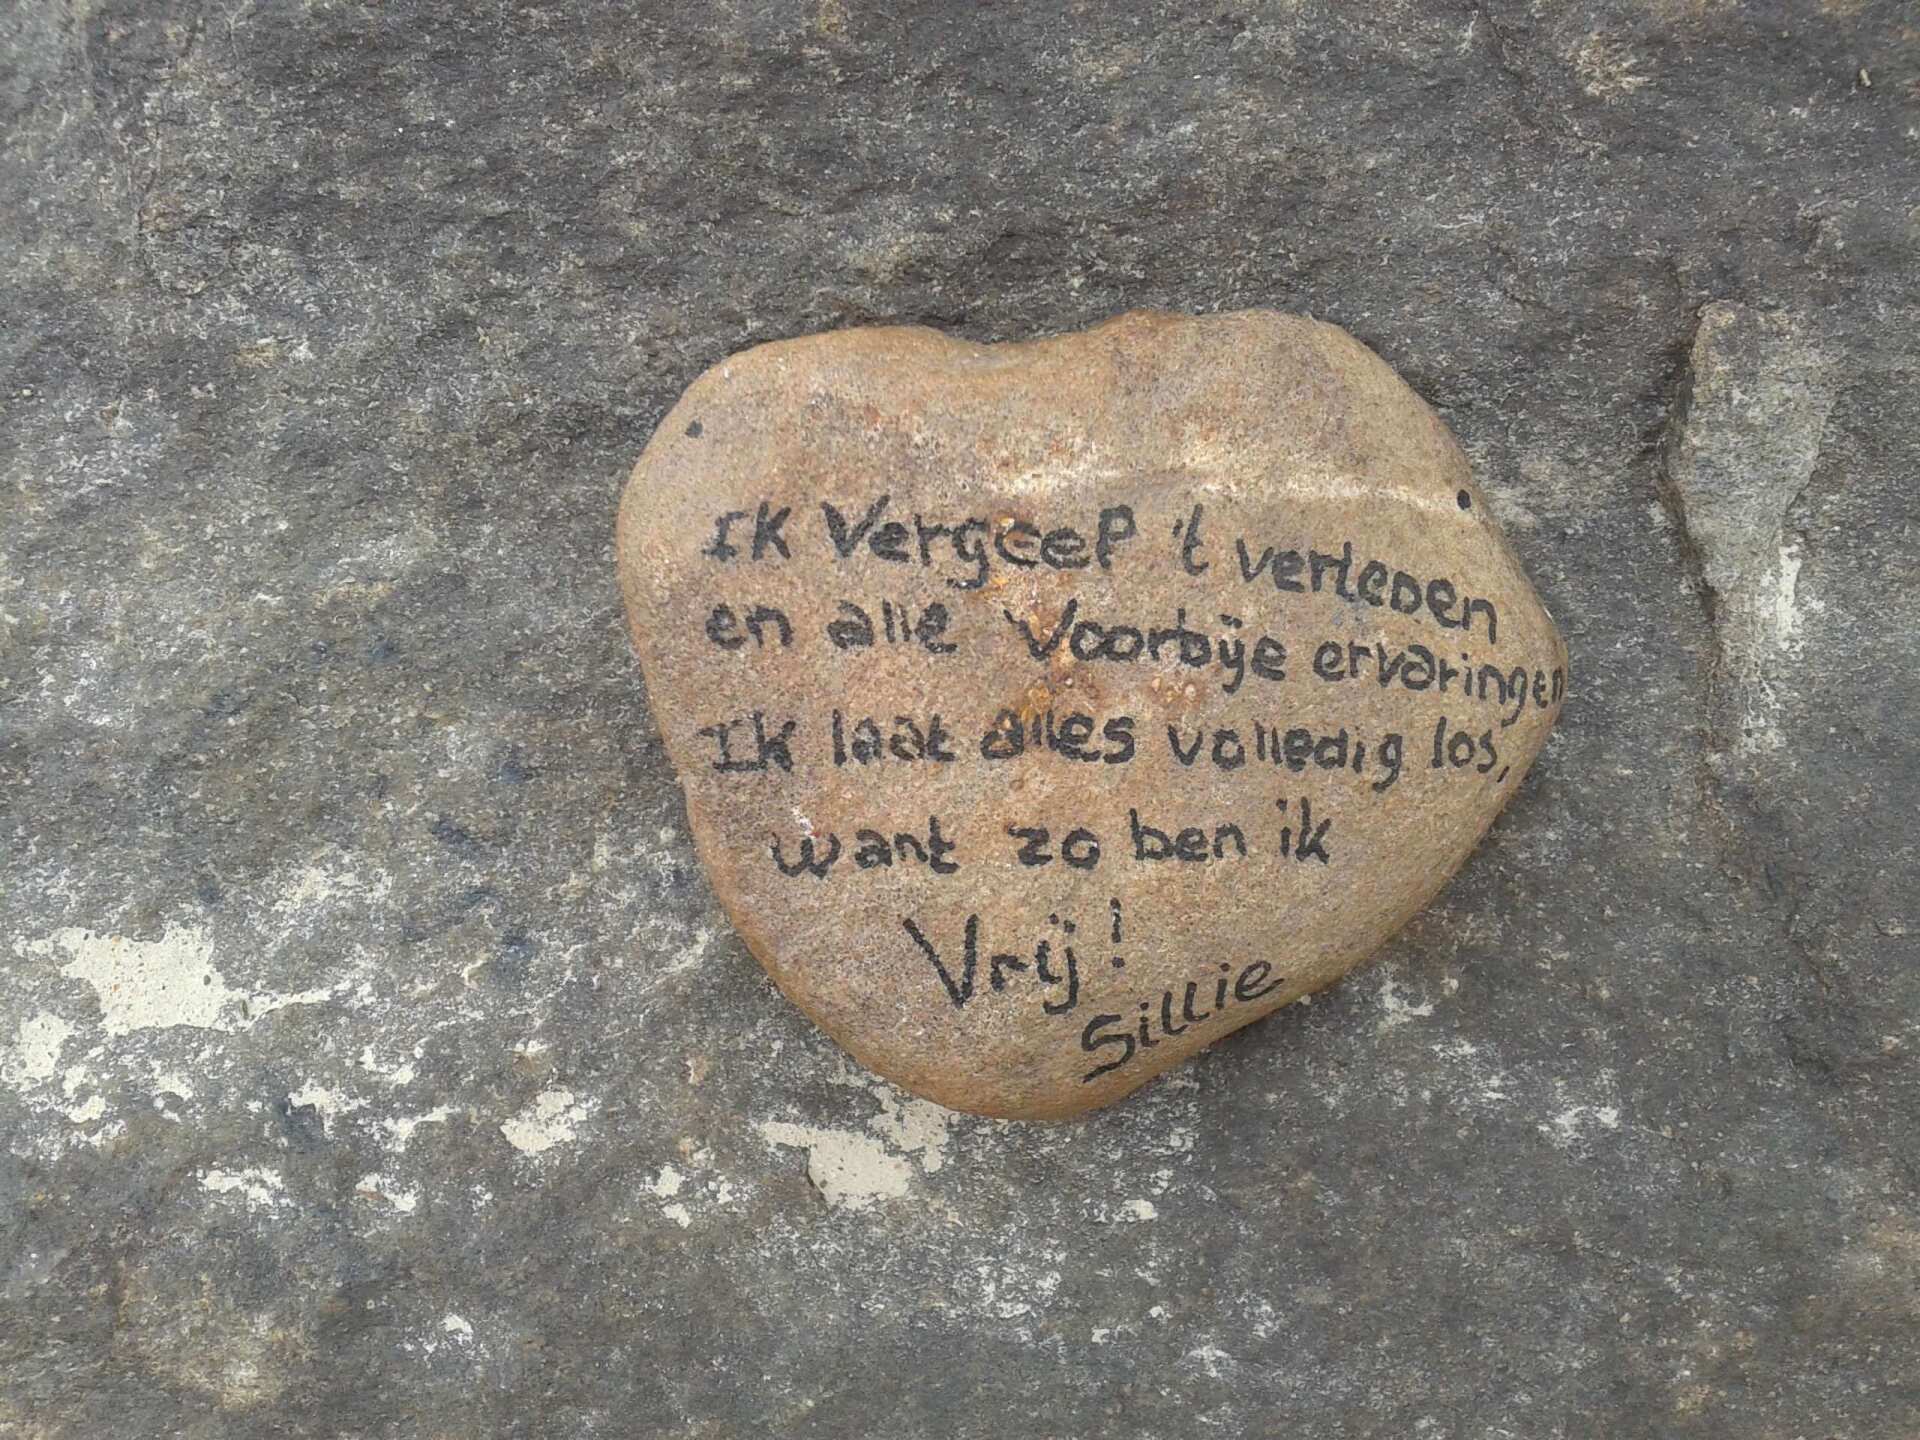 Ik vergeef 't verleden
en alle voorbije ervaringen
Ik laat alles volledig los,
want zo ben ik
Vrij!
Sillie